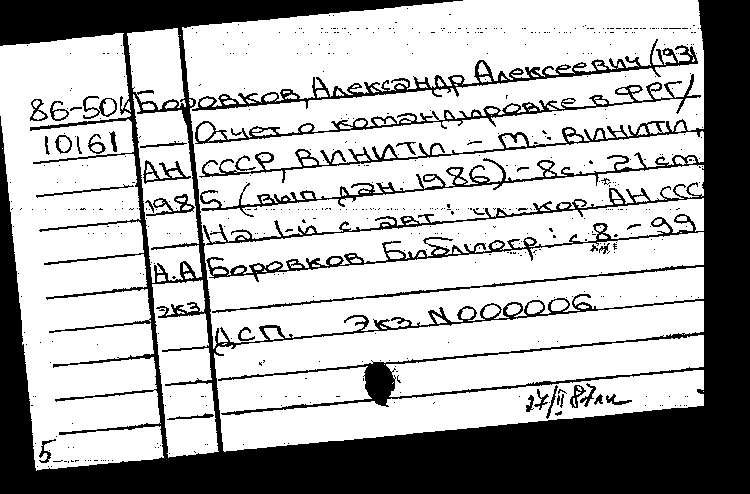 86-50К Боровков, Александр Алексеевич (1931
10161 Отчет о командировке в ФРГ/
АН СССР, ВИНИТИ. - М.: ВИНИТИ,
1985 (вып. дан. 1986). - 8с.; 21 см
На 1-й с. авт.: чл.-кор. АН ССС
А.А. Боровков. Библиогр.: с. 8. - 99
экз.
ДСП. Экз. N000006
27/II 87
5